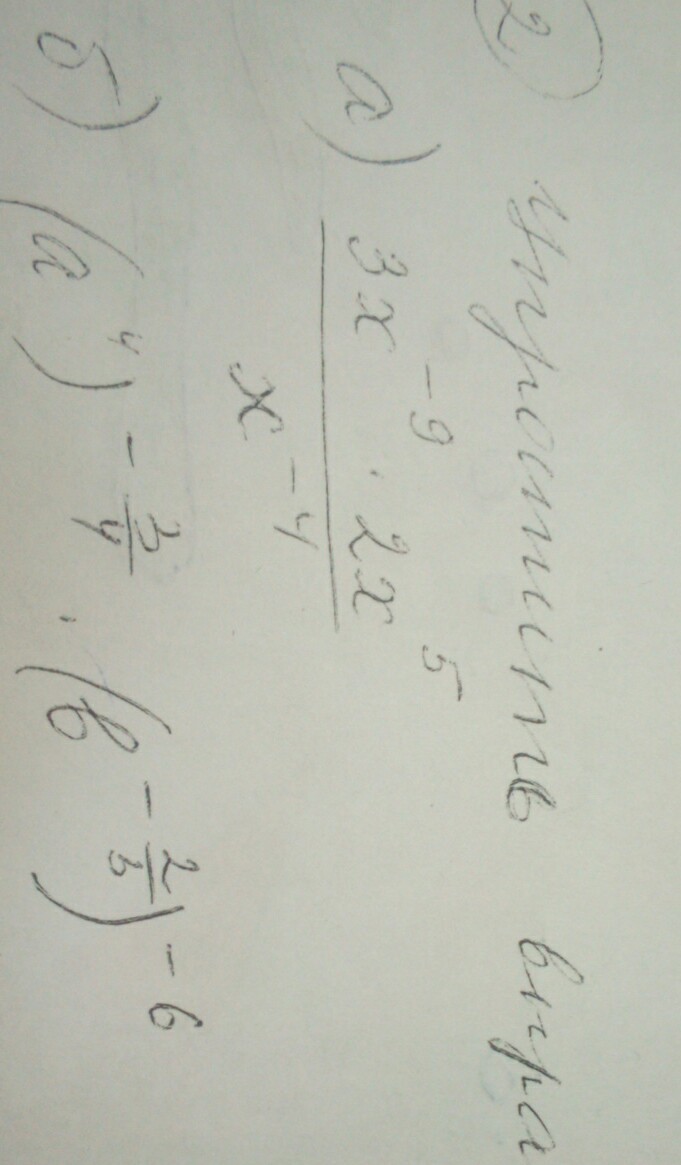 2 Упростить выра
а) (3x^-9 · 2x^5) / x^-4
б) (a^4)^-3/4 · (b^-2/3)^-6